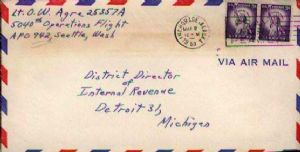 Lt. O. W. Agre 25357A
5040th Operations Flight
APO 942, Seattle, Wash
VIA AIR MAIL
District Director
of
Internal Revenue
Detroit 31,
Michigan